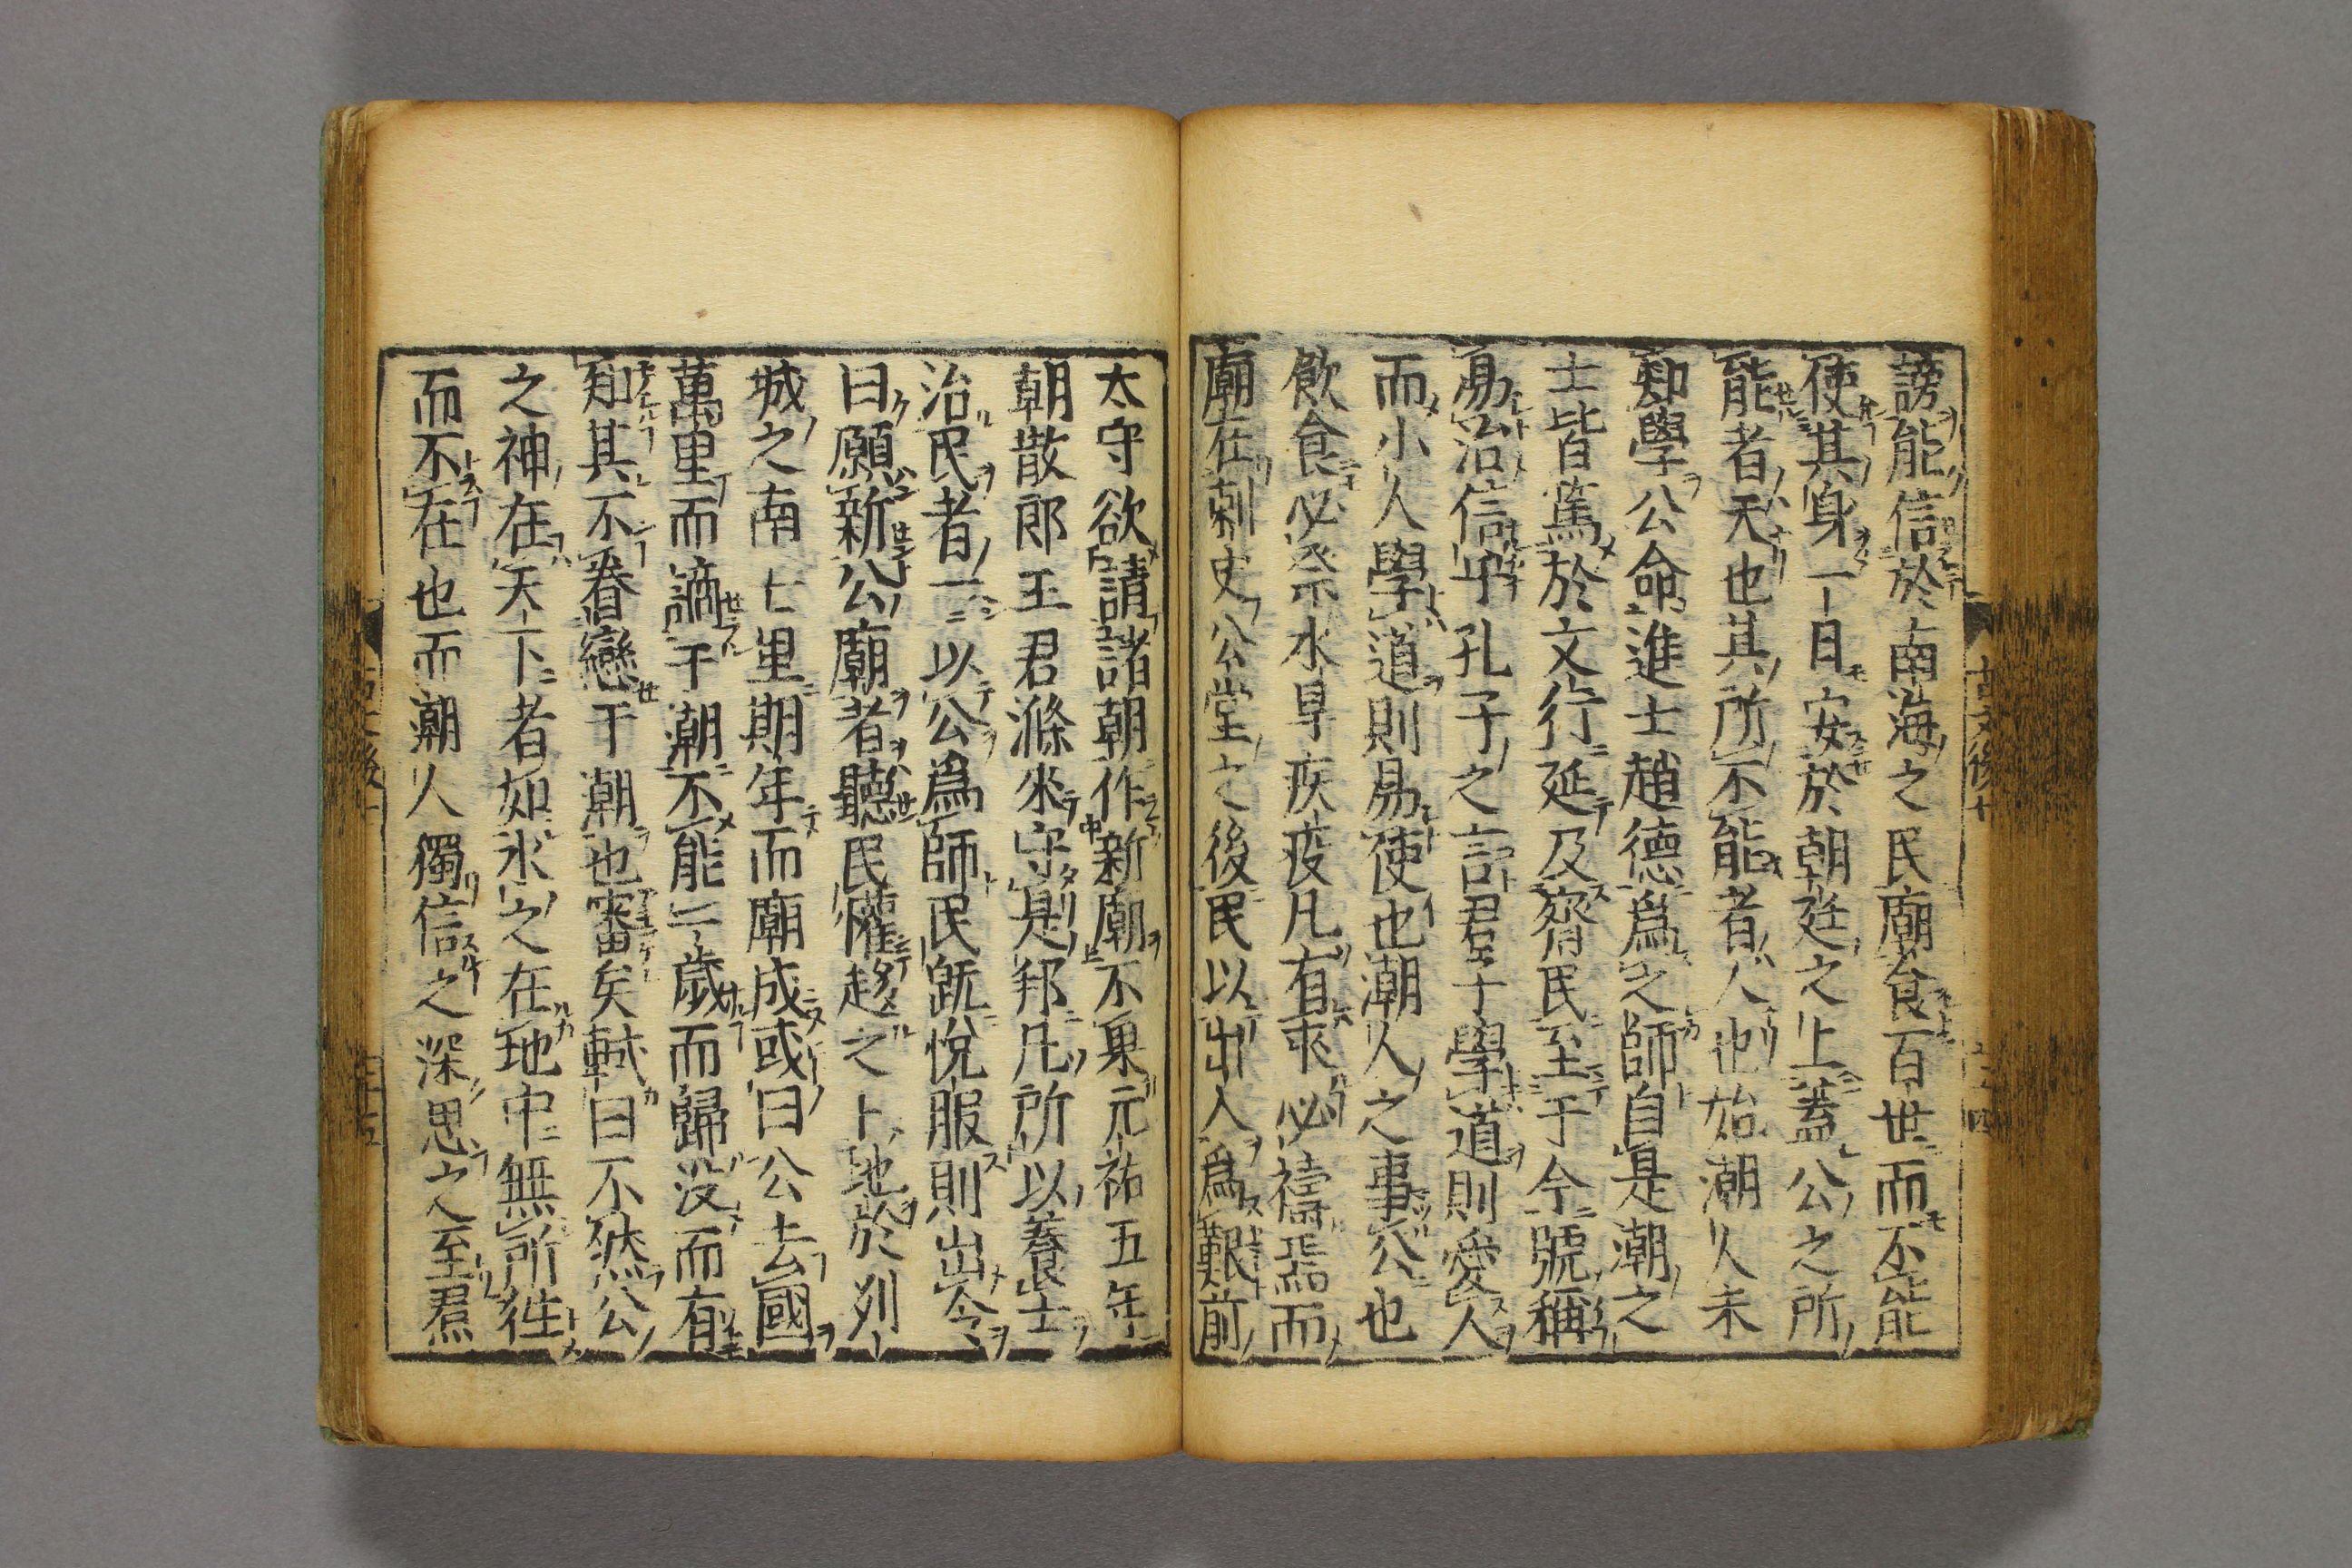 謗能信於南海之民廟食百世而不能
使其身一日安於朝廷之上蓋公之所
能者天也其所不能者人也始潮人未
知學公命進士趙德爲之師自是潮之
士皆篤於文行延及齊民至于今號稱
易治信乎孔子之言君子學道則愛人
而小人學道則易使也潮人之事公也
飲食必祭水旱疾疫凡有求必禱焉而
廟在刺史公堂之後民以出入爲艱前
古文後十
太守欲請諸朝作新廟不果元祐五年
朝散郎王君滌來守是邦凡所以養士
治民者一以公爲師民旣悅服則出令
曰願新公廟者聽民懽趍之卜地於列
城之南七里期年而廟成或曰公去國
萬里而謫于潮不能一歲而歸没而有
知其不眷戀于潮也審矣軾曰不然公
之神在天下者如水之在地中無所徃
而不在也而潮人獨信之深思之至焄